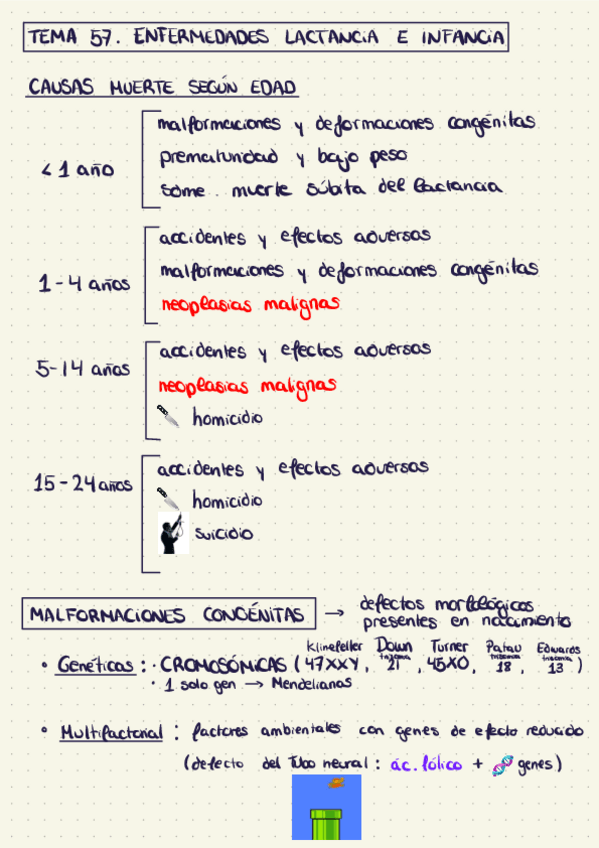 TEMA 57. ENFERMEDADES LACTANCIA E INFANCIA
CAUSAS MUERTE SEGÚN EDAD
< 1 año
malformaciones y deformaciones congénitas
prematuridad y bajo peso
some. muerte súbita del lactancia
1-4 años
accidentes y efectos adversos
malformaciones y deformaciones congénitas
neoplasias malignas
5-14 años
accidentes y efectos adversos
neoplasias malignas
homicidio
15-24 años
accidentes y efectos adversos
homicidio
suicidio
MALFORMACIONES CONGÉNITAS → defectos morfológicos
presentes en nacimiento
Klinefelter Down Turner Patau Edwards
trisomía trisomía trisomía
• Genéticas: · CROMOSÓMICAS (47XXY, 21, 45XO, 18, 13)
· 1 solo gen → Mendelianas
• Multifactorial: factores ambientales con genes de efecto reducido
(defecto del Tubo neural: ác. fólico + genes)